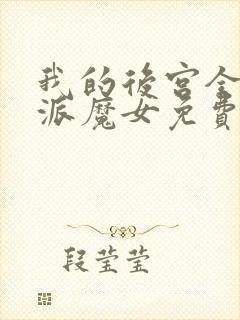 我的後宮全
派魔女免費
段莹莹